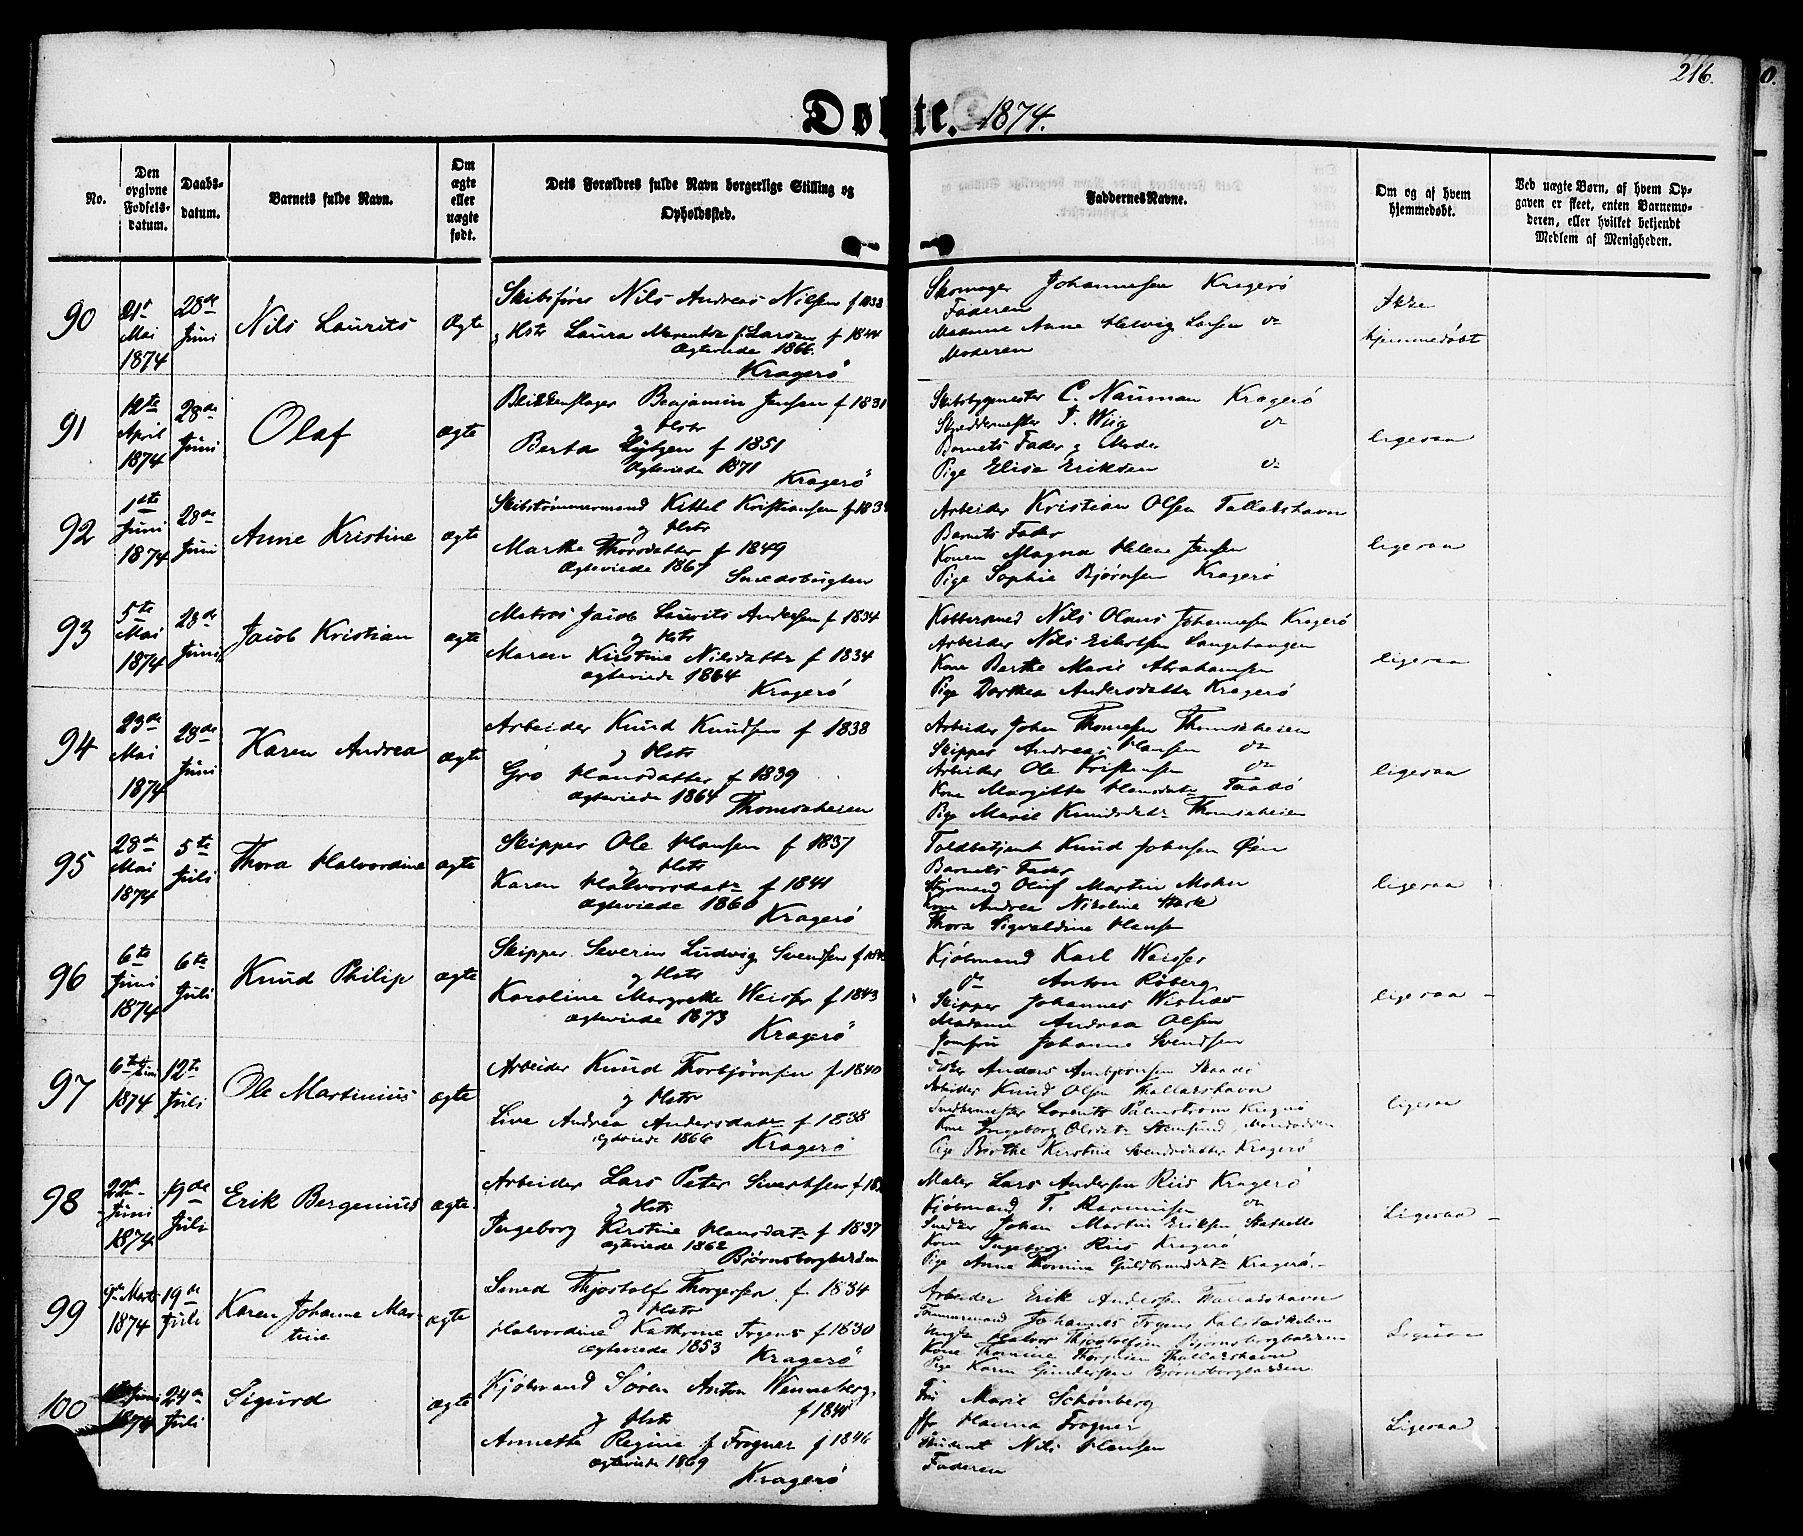 216.
Døbte. 1874.
No.
Den opgivne Fødsels-datum.
Daabs-datum.
Barnets fulde Navn.
Om ægte eller uægte født.
Dets Forældres fulde Navn borgerlige Stilling og Opholdssted.
Faddernes Navne.
Om og af hvem hjemmedøbt.
Ved uægte Børn, af hvem Op-gaven er skeet, enten Barnemo-deren, eller hvilket bekjendt Medlem af Menigheden.
90
21de Mai 1874
28de Juni
Nils Laurits
ægte
Skibsfører Nils Andreas Nilsen f 1838
g Hstr Laura Marentze f. Larsen f 1844
Ægteviede 1866.
Kragerö
Skomager Johannesen Kragerö
Faderen
Madame Anne Helvig Larsen do
Moderen
Ikke hjemmedøbt
91
12te April 1874
28de Juni
Olaf
ægte
Blikkenslager Benjamin Jensen f 1831
g Hstr
Berta f 1851
Ægteviede 1871
Kragerö
Skibsbygmester C. Nauman Kragerö
Skræddermester J. Wiig do
Barnets Fader g Moder
Pige Elise Eriksen do
ligesaa
92
1ste Juni 1874
28de Juni
Anne Kristine
ægte
Skibstømmermand Kittel Kristiansen f
g Hstr
Marthe Thorsdatter f 1849
Ægteviede 1867
Smedsbugten
Arbeider Kristian Olsen Tallakshavn
Barnets Fader
Konen Magna Helene Jensen
Pige Sophie Bjørnsen Kragerö
ligesaa
93
5te Mai 1874
28de Juni
Jacob Kristian
ægte
Matros Jacob Laurits Andersen f 1834
g Hstr
Maren Kirstine Nilsdatter f 1834
ægteviede 1864
Kragerö
Kobbersmed Nils Olaus Johannesen Kragerö
Arbeider Nils Eilertsen Langetangen
Kone Berthe Marie Abrahamsen
Pige Dorthea Andersdatter Kragerö
ligesaa
94
23de Mai 1874
28de Juni
Karen Andrea
ægte
Arbeider Knud Knudsen f 1838
g Hstr
Gro Hansdatter f 1839
ægteviede 1864
Thomseheien
Arbeider Johan Thomesen Thomseheien
Skipper Andreas Hansen do
Arbeider Ole Kristensen do
Kone Margitte Hansdatr Taadö
Pige Marie Knudsdatr Thomseheien
ligesaa
95
28de Mai 1874
5te Juli
Thora Halvordine
ægte
Skipper Ole Hansen f 1837
g Hstr
Karen Halvorsdatr f 1841
ægteviede 1860
Kragerö
Toldbetjent Knud Johnsen Øen
Barnets Fader
Styrmand Oluf Martin Moken
Kone Andrea Nikoline Stark
Thora Sigvaldine Hansen
ligesaa
96
6te Juni 1874
6te Juli
Knud Philip
ægte
Skipper Severin Ludvig Svendsen f
g Hstr
Karoline Margrethe Weisser f 1843
ægteviede 1873
Kragerö
Kjøbmand Karl Weisser
do Anton Röberg
Skipper Johannes
Madame Andrea Olsen
Jomfru Johanne Svendsen
ligesaa
97
6te Juni 1874
12te Juli
Ole Martinius
ægte
Arbeider Knud Thorbjörnsen f 1840
g Hstr
Live Andrea Andersdatr f 1838
ægteviede 1866
Kragerö
Anders Ambjørnsen Skaadö
Arbeider Knud Olsen Thallakshavn
Lorents Palmstrøm Kragerö
Kone Ingeborg Olsdatr Stensund,
Pige Berthe Kirstine Svendsdatter Kragerö
ligesaa
98
22de Juni 1874
19de Juli
Erik Bergenius
ægte
Arbeider Lars Peter Sivertsen f
g Hstr
Ingeborg Kirstine Hansdatr f 1837
ægteviede 1862
Bjørnsborgbakken
Maler Lars Andersen Riis Kragerö
Kjøbmand T. Rasmussen do
Snedker Johan Martin Eriksen
Kone Ingeborg Riis Kragerö
Pige Anne Thomine Guldbrandsdatr Kragerö.
Ligesaa
99
9de Marts 1874
19de Juli
Karen Johanne Mar-tine
ægte
Smed Thjostolf Thorgersen f 1834
g Hstr
Halvordine Kathrine Trgens f 1830
ægteviede 1853
Kragerö
Arbeider Erik Andersen Thallakshavn
Tømmermand Johannes
Ungk Halvor Thjostolfsen Bjørnsborgbakken
Kone Thomine Thorgersen Thallakshavn
Pige Karen Gundersen Bjørnsborgbakken
Ligesaa
100
Juni 1874
24de Juli
Sigurd
ægte
Kjøbmand Sören Anton Wenneberg,
f 1841
g Hstr
Annette Regine f Frogner f 1846
ægteviede 1869
Kragerö
Fru Marie Schönberg
Hanna Frogner
Student Nils Hansen
Faderen
Ligesaa